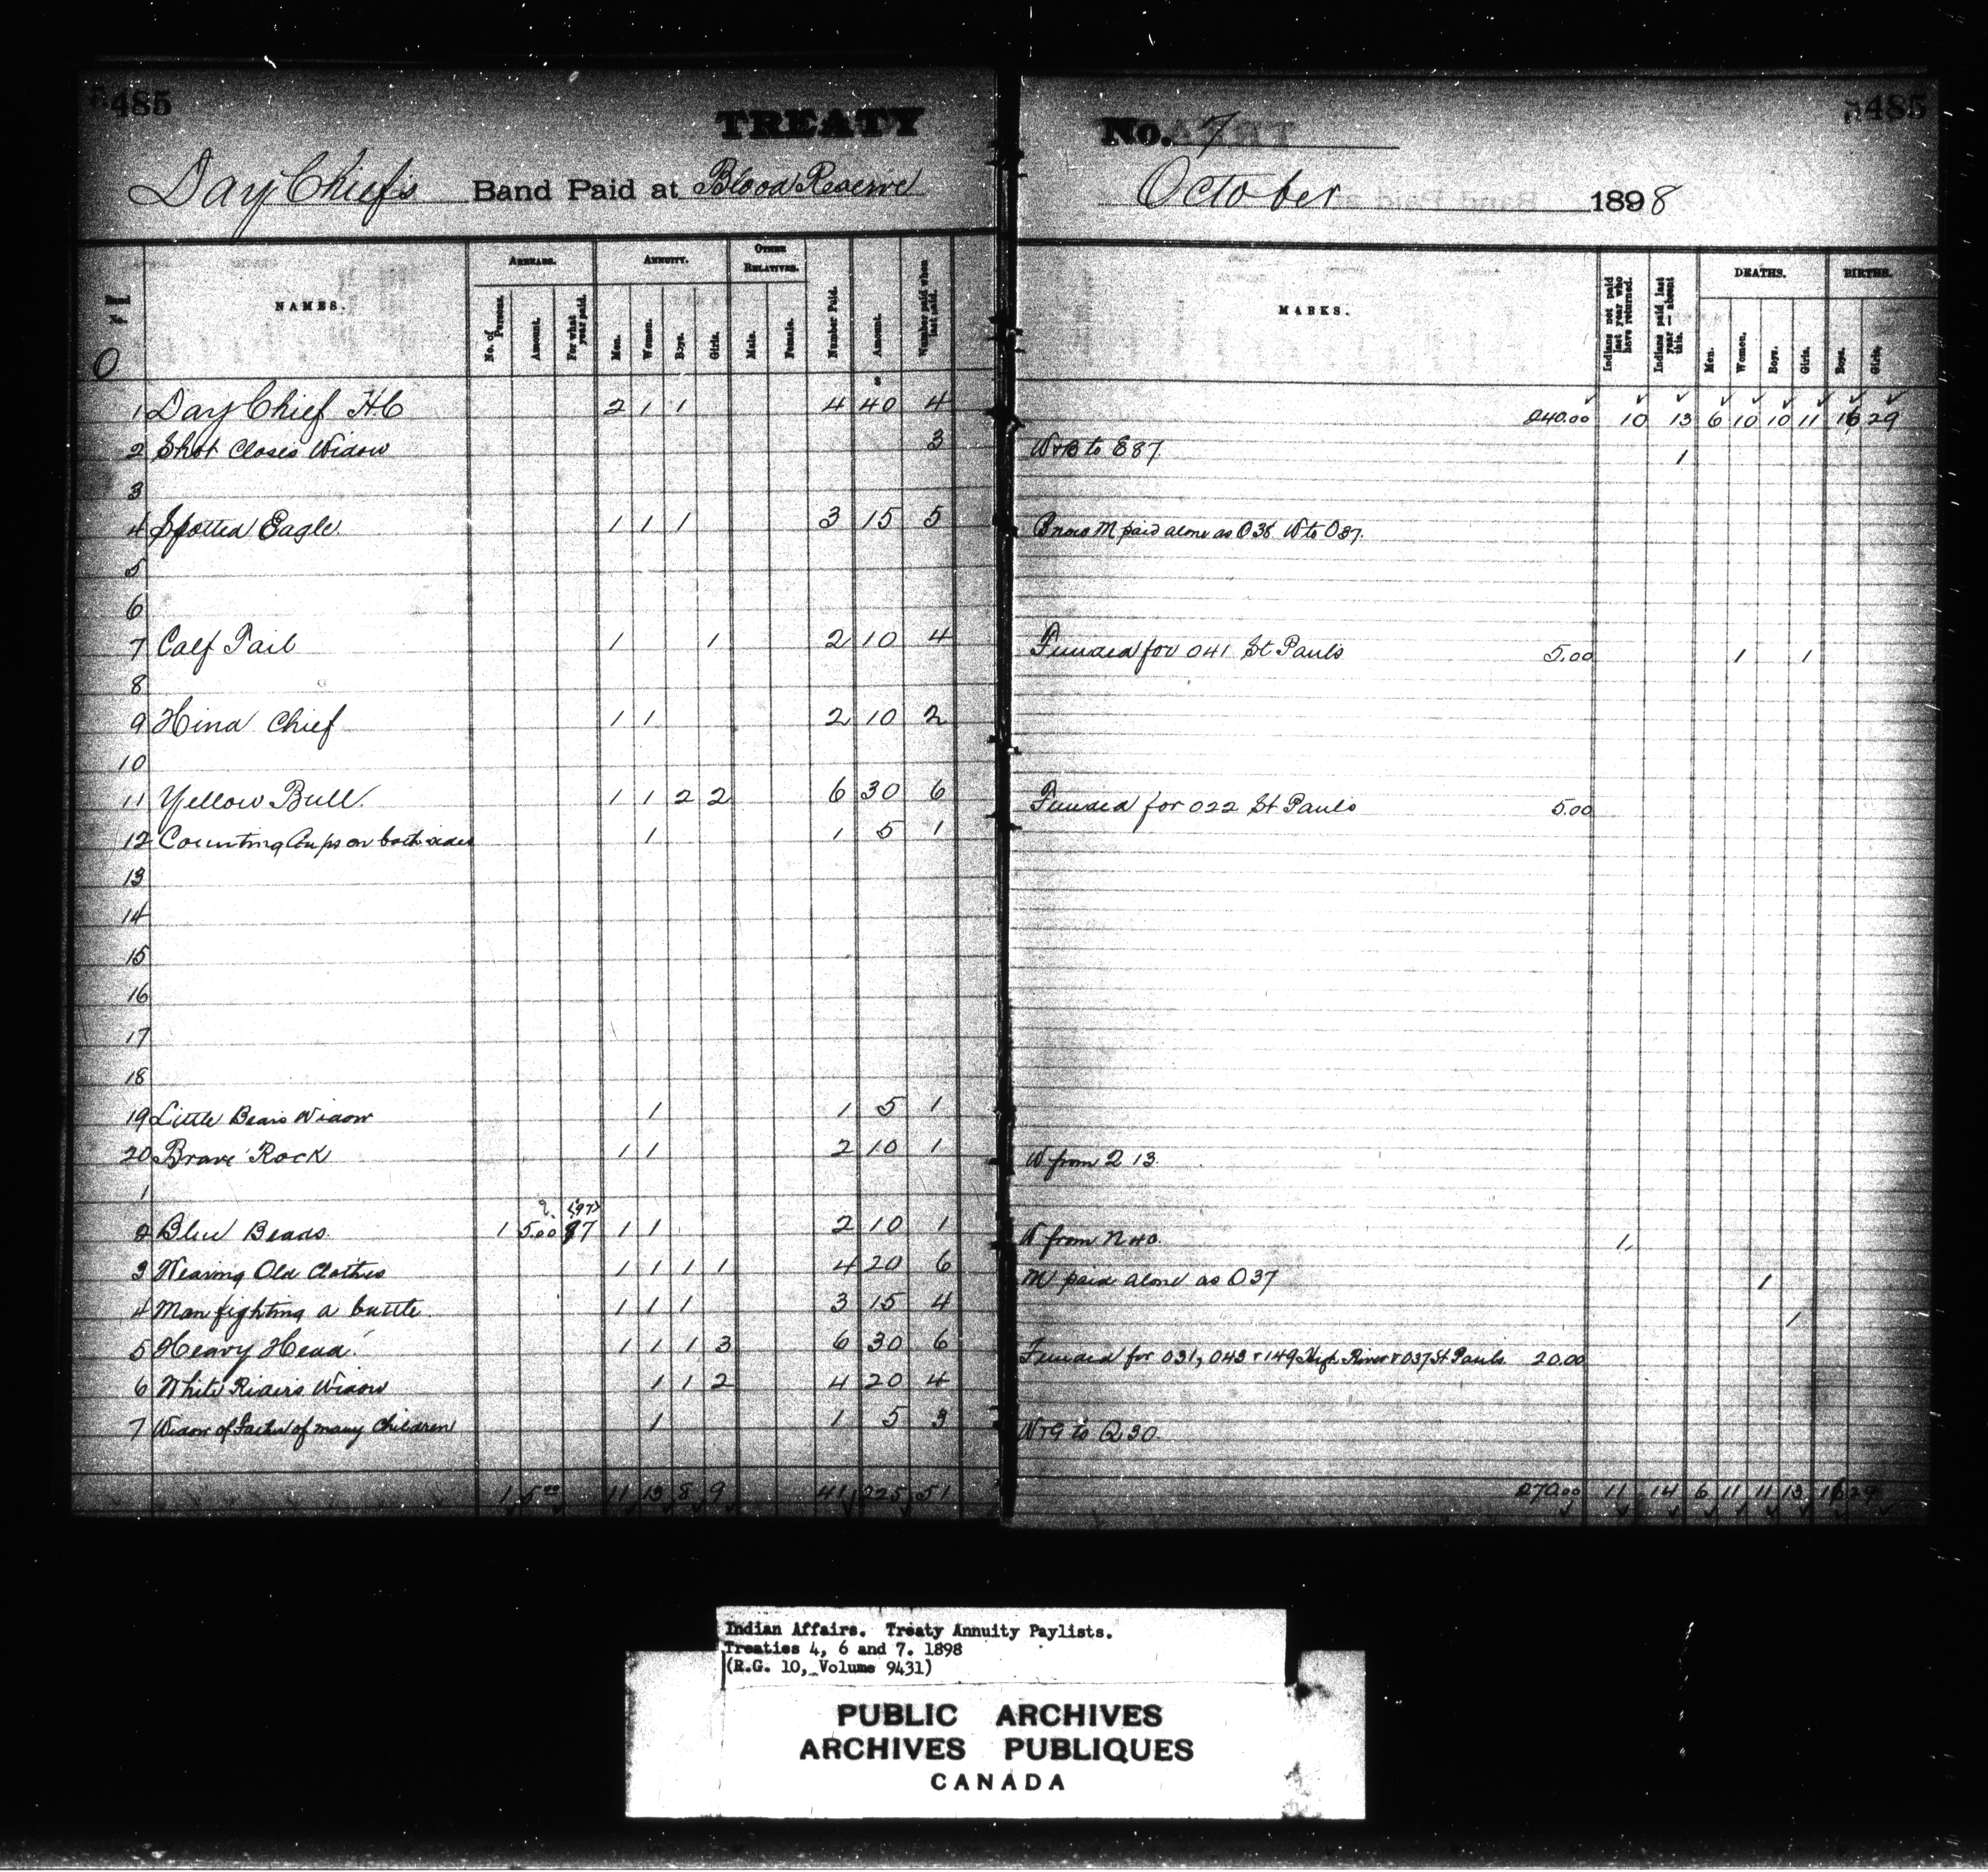 485
TREATY
No. 7
485
Day Chief's Band Paid at Blood Reserve
October 1898
NAMES.
ARREARS.
ANNUITY.
OTHER RELATIVES.
No. of Persons.
Amount.
For what year paid.
Men.
Women.
Boys.
Girls.
Male.
Female.
Number Paid.
Amount.
Number paid when last paid.
MARKS.
Indians not paid last year who have returned.
Indians paid last year — absent this.
DEATHS.
BIRTHS.
Men.
Women.
Boys.
Girls.
Boys.
Girls.
O
1 Day Chief HC 2 1 1 4 40 4 240.00 10 13 6 10 10 11 16 29
2 Shot Closes Widow 3 W+B to E87 1
3
4 Spotted Eagle. 1 1 1 3 15 5 M paid alone as O38 W to O37.
5
6
7 Calf Tail 1 1 2 10 4 Funded for 041 St Pauls 5.00 1 1
8
9 Hind Chief 1 1 2 10 2
10
11 Yellow Bull. 1 1 2 2 6 30 6 Funded for 022 St Pauls 5.00
12 Counting Coups on both sides 1 1 5 1
13
14
15
16
17
18
19 Little Bears Widow 1 1 5 1
20 Brave Rock 1 1 2 10 1 W from Q 13.
1
2 Blue Beads. 1 5.00 97 1 1 2 10 1 W from N40. 1
3 Wearing Old Clothes 1 1 1 1 4 20 6 M paid alone as O37 1
4 Man fighting a battle 1 1 1 3 15 4 1
5 Heavy Head 1 1 1 3 6 30 6 Funded for 031, 043 + 149 High River + 037 St Pauls 20.00
6 White Riders Widow 1 1 2 4 20 4
7 Widow of Father of many Children 1 1 5 3 W+G to Q30
1 5.00 11 13 8 9 41 225 51 270.00 11 14 6 11 11 13 16 29
Indian Affairs. Treaty Annuity Paylists.
Treaties 4, 6 and 7. 1898
(R.G. 10, Volume 9431)
PUBLIC ARCHIVES
ARCHIVES PUBLIQUES
CANADA